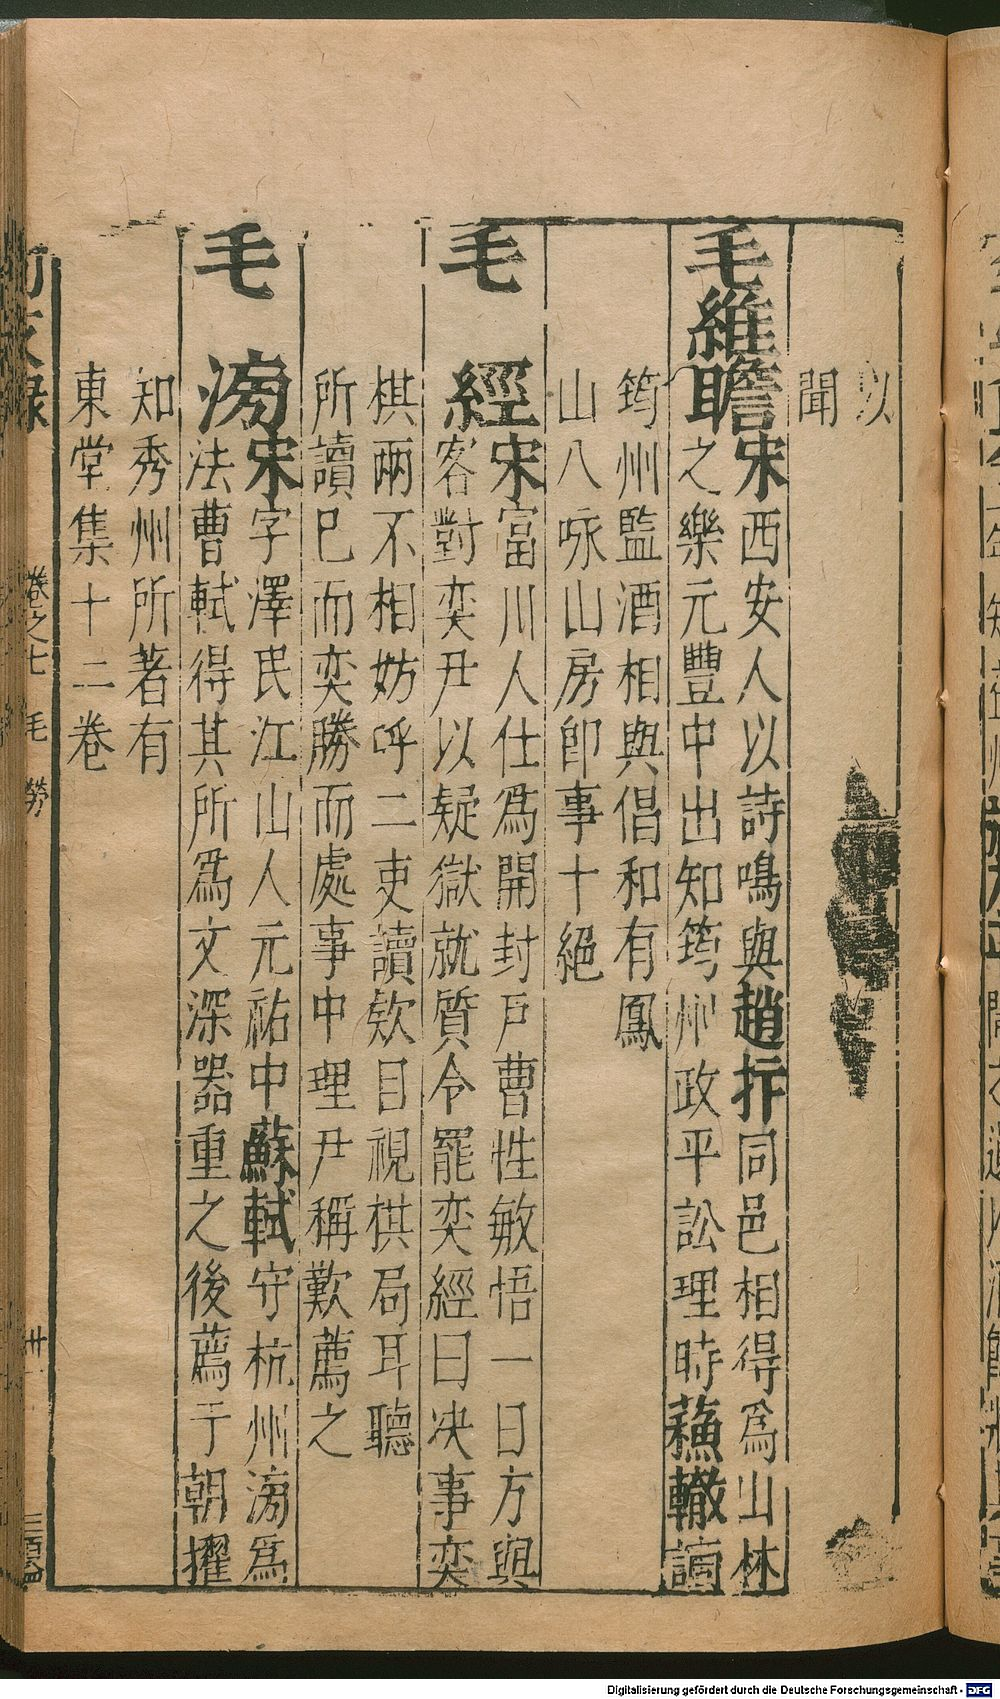 以
聞
毛維瞻宋西安人以詩鳴與趙抃同邑相得爲山林
之樂元豐中出知筠州政平訟理時蘇轍謫
筠州監酒相與倡和有鳳
山八咏山房即事十絕
毛 經宋富川人仕爲開封戶曹性敏悟一日方與
客對奕尹以疑獄就質令罷奕經曰决事奕
棋兩不相妨呼二吏讀欵目視棋局耳聽
所讀已而奕勝而處事中理尹稱歎薦之
毛 滂宋字澤民江山人元祐中蘇軾守杭州滂爲
法曹軾得其所爲文深器重之後薦于朝擢
知秀州所著有
東堂集十二卷
卷之七 毛 勞 卅
Digitalisierung gefördert durch die Deutsche Forschungsgemeinschaft - DFG